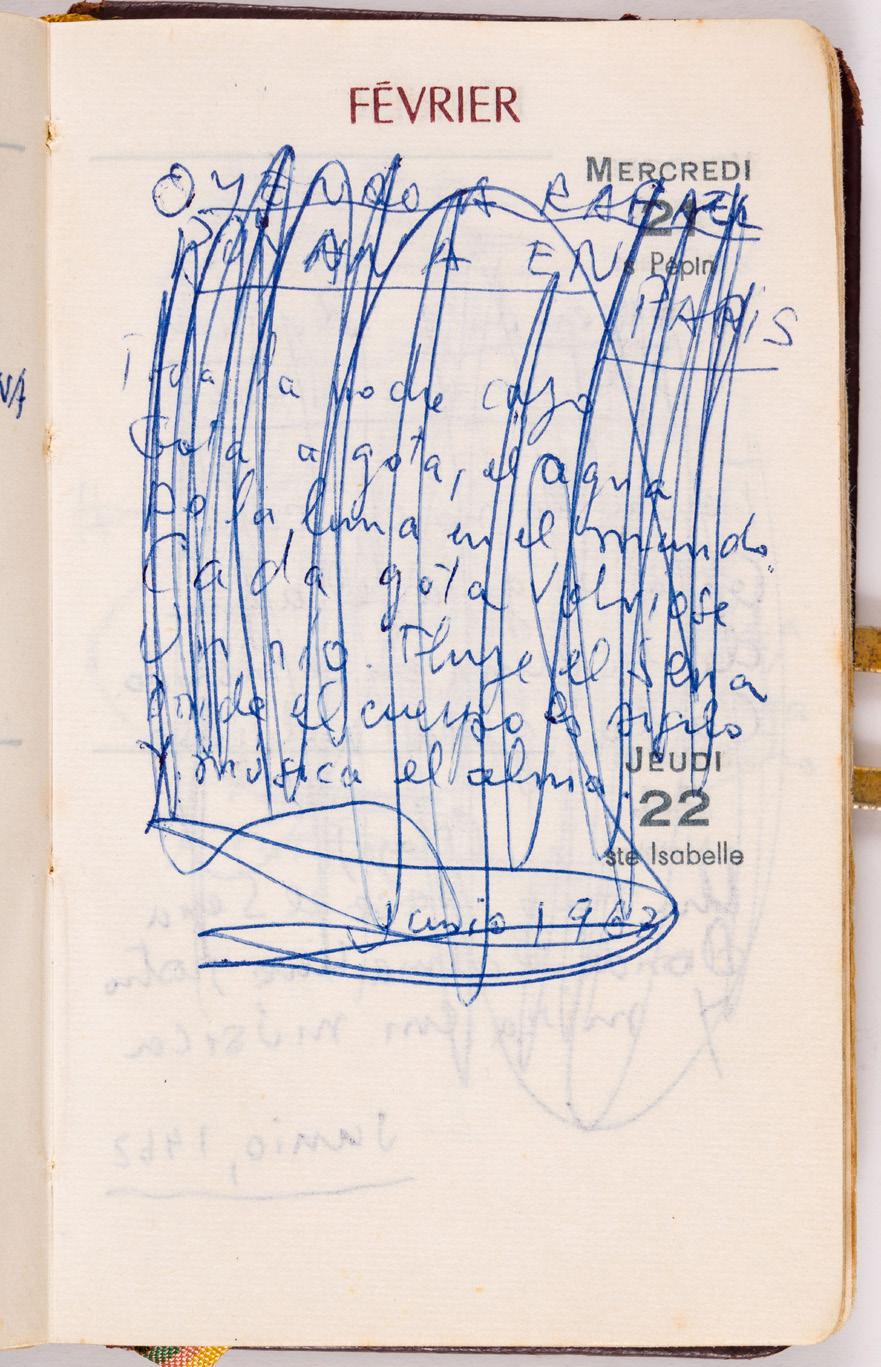 FÉVRIER
MERCREDI
21
s Pépin
OYENDO A RAFAEL
ROMANA EN
PARIS
Toda la noche cayo
Gota a gota, el agua
De la luna en el mundo.
Cada gota volviose
Un rio. Fluye el Sena
Donde el cuerpo es siglo
Y música el alma.
JEUDI
22
ste Isabelle
Junio 1962